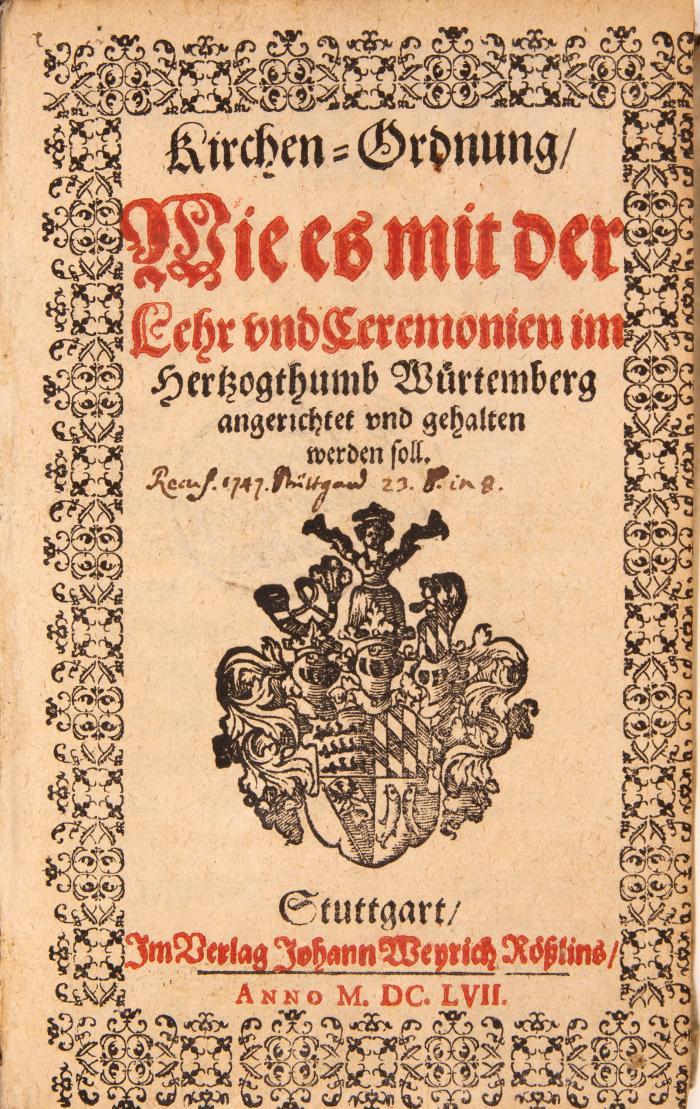 Kirchen=Ordnung/
Wie es mit der
Lehr vnd Ceremonien im
Hertzogthumb Würtemberg
angerichtet vnd gehalten
werden soll.
Recus. 1747. Stuttgard 23. B. in 8.
Stuttgart/
Im Verlag Johann Weyrich Rößlins/
ANNO M. DC. LVII.